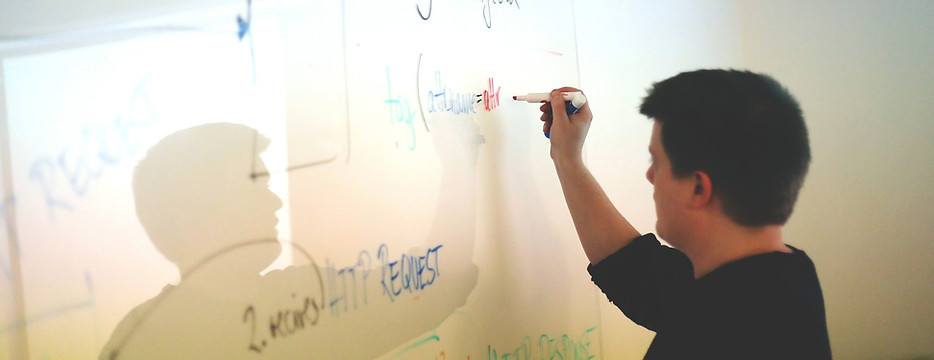 tag (attrname=attr
REQUEST
2. recipes) HTTP REQUEST
HTTP RESPONSE